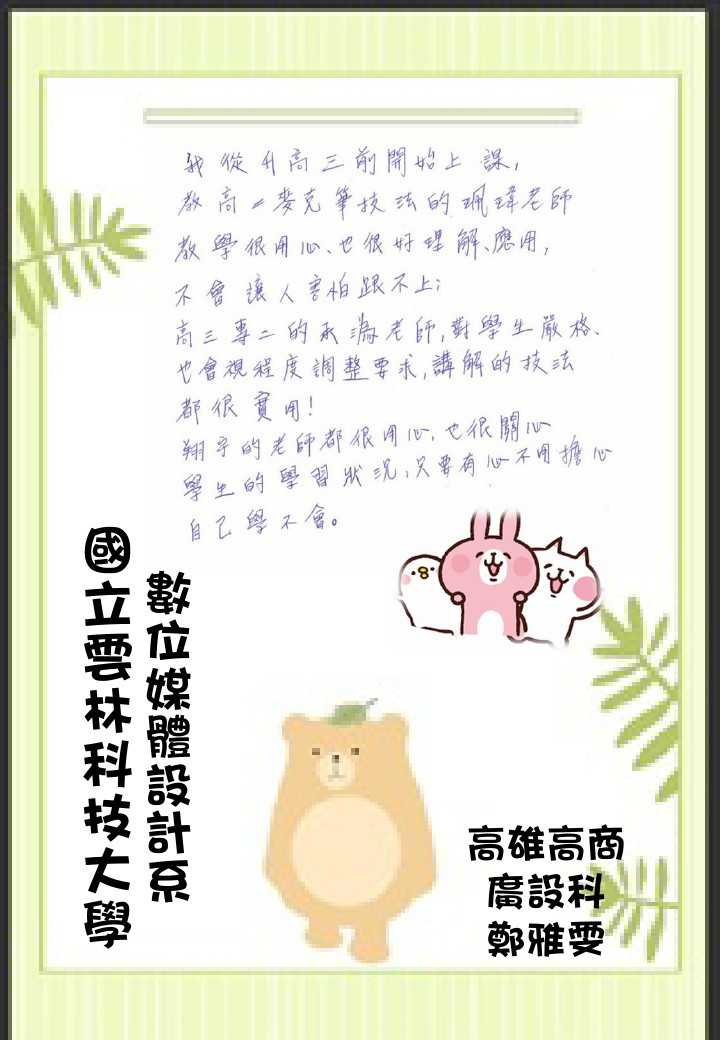 我從升高三前開始上課,
教高二麥克筆技法的珮瑋老師
教學很用心、也很好理解、應用,
不會讓人害怕跟不上;
高三專二的承為老師,對學生嚴格、
也會視程度調整要求,講解的技法
都很實用!
翔宇的老師都很用心,也很關心
學生的學習狀況,只要有心不用擔心
自己學不會。
國立雲林科技大學
數位媒體設計系
高雄高商
廣設科
鄭雅雯